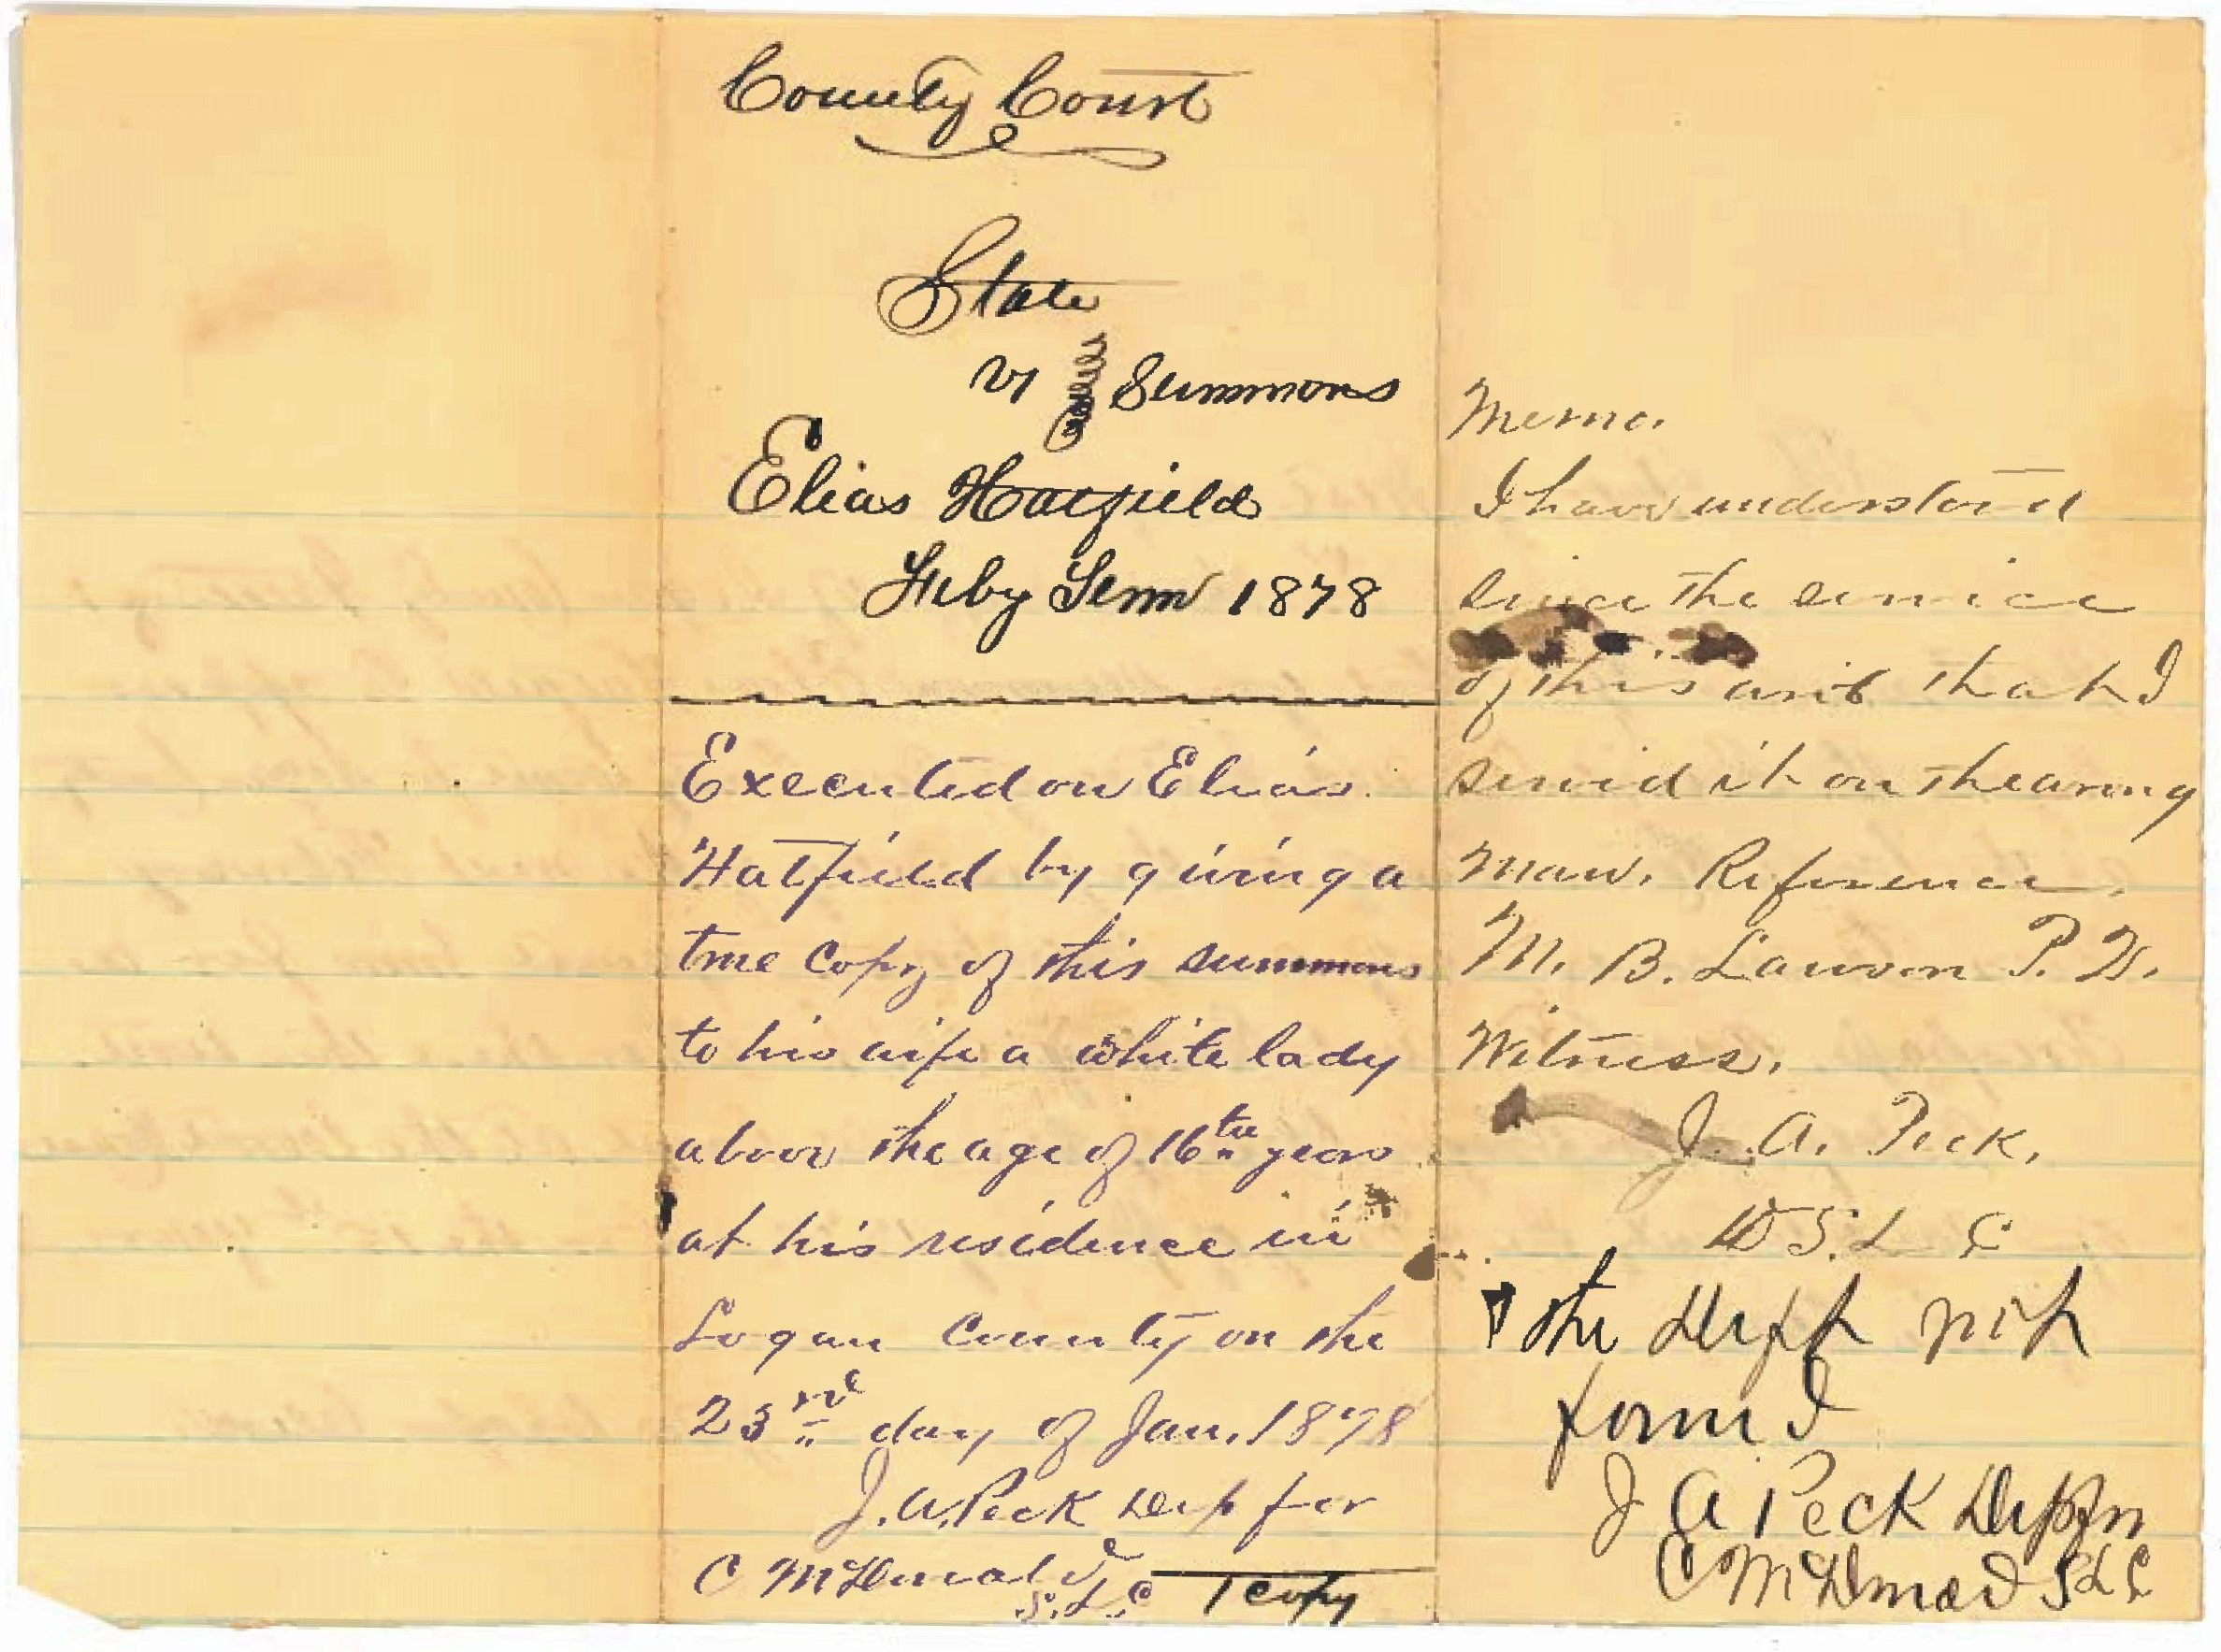 County Court
State
vs Summons
Elias Hatfield
Feby Term 1878
Executed on Elias
Hatfield by giving a
true Copy of this summons
to his wife a white lady
above the age of 16th years
at his residence in
Logan County on the
23rd day of Jan. 1878
J. A. Peck Dep for
C McDonald
S. L. C
1 copy
Memo.
I have understood
since the service
of this writ that I
servid it on the wrong
man. Reference.
M. B. Lawson P. W.
Witness.
J. A. Peck.
D S. L C
the Deft not
found
J A Peck Dep for
C McDonald S L C